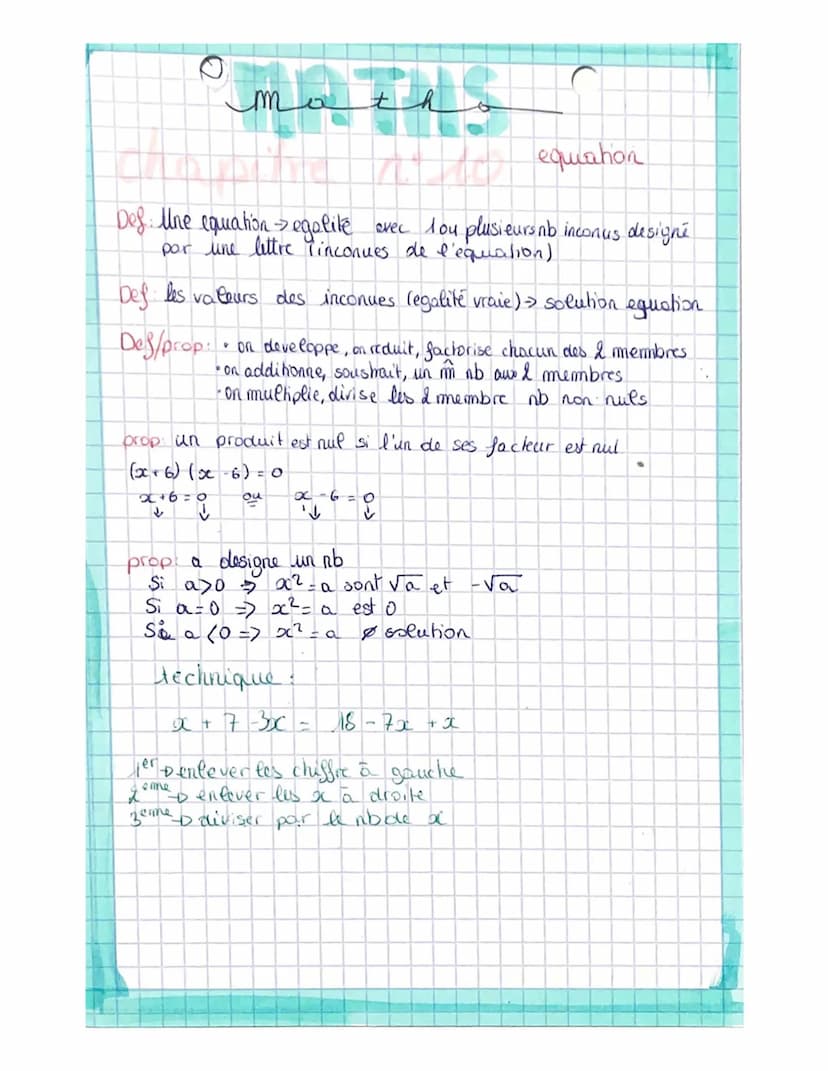 MATHS
maths
chapitre n°10 equation
Def: Une equation → egalité avec 1 ou plusieurs nb inconus designé
par une lettre (inconues de l'equation)
Def: les valeurs des inconues (egalité vraie) → solution equation
Def/prop: • on developpe, on reduit, factorise chacun des 2 membres
• on additionne, soustrait, un m̂ nb aux 2 membres
• on multiplie, divise les 2 membre nb non nuls
prop: un produit est nul si l'un de ses facteur est nul
(x+6) (x-6) = 0
x+6 = 0 ou x-6 = 0
↓ ↓ ↓ ↓
prop: a designe un nb
Si a>0 => x² = a sont √a et -√a
Si a=0 => x² = a est 0
Si a<0 => x² = a ∅ solution
technique:
x + 7 - 3x = 18 - 7x + x
1er → enlever les chiffre à gauche
2eme → enlever les x à droite
3eme → diviser par le nb de x